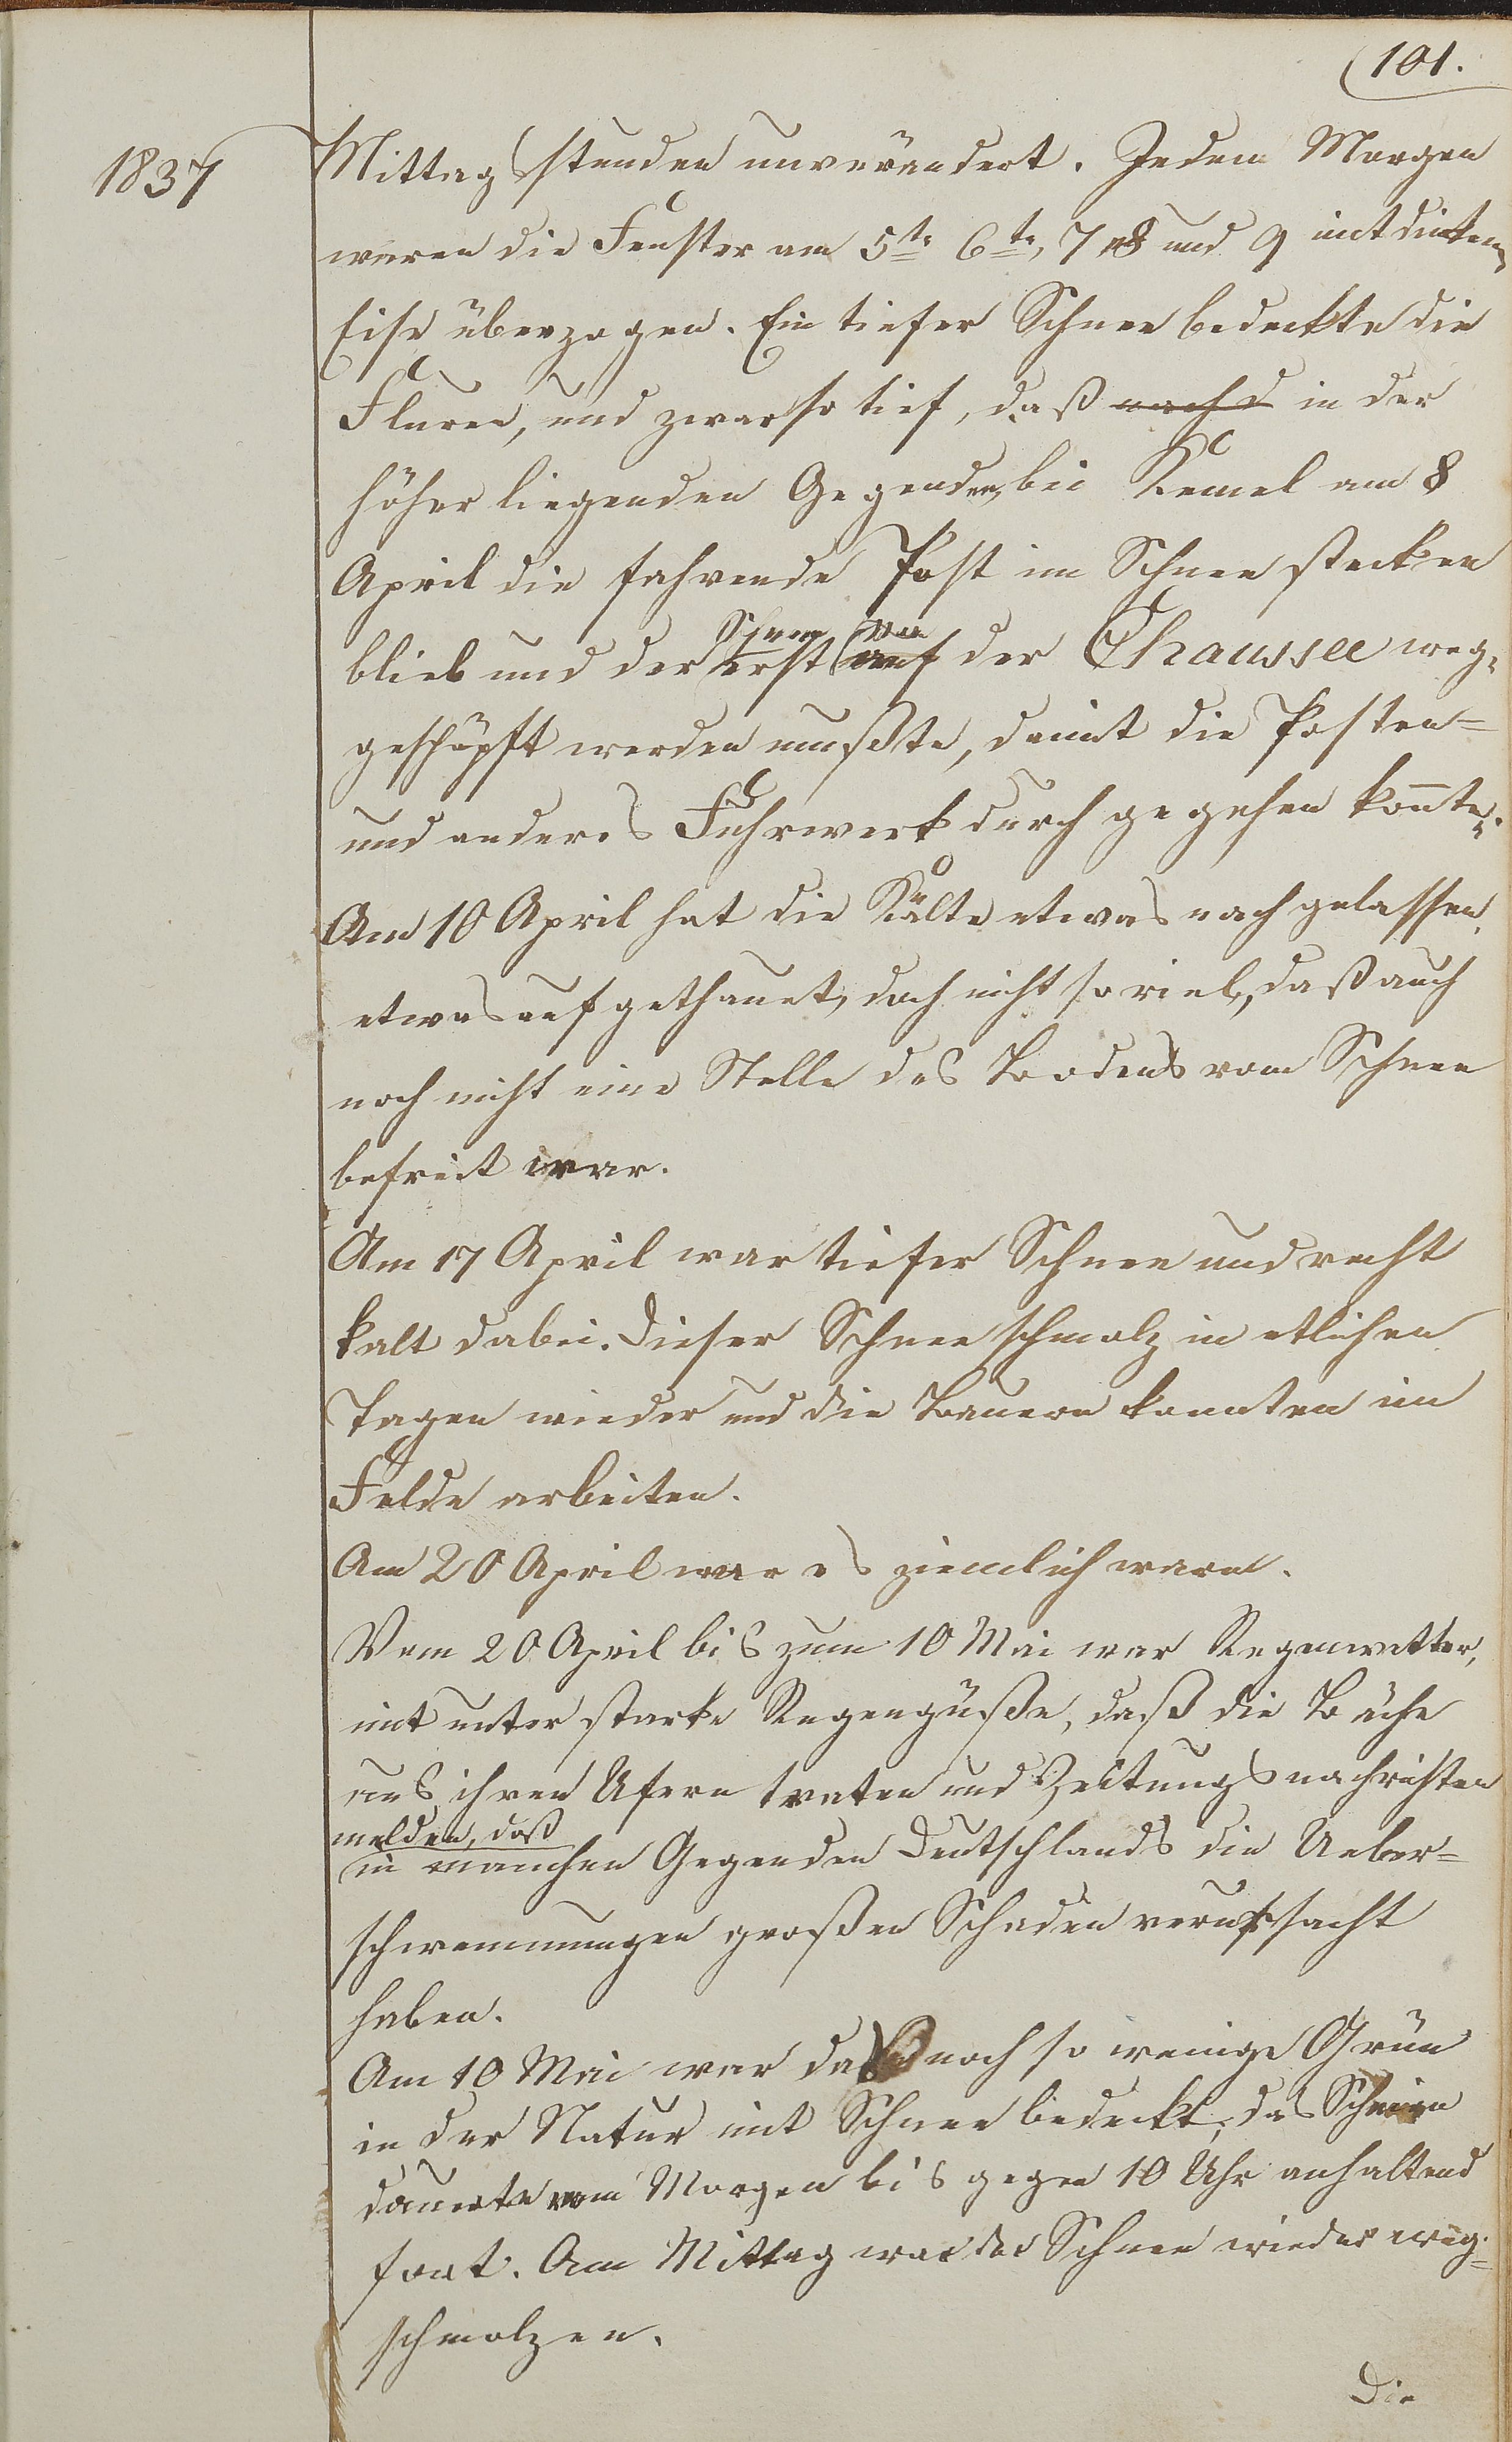 101.
1837
Mittagsstunden unverändert. Jeden Morgen
waren die Fenster am 5te 6te, 7 8 und 9 mit dicken
Eise überzogen. Ein tiefer Schnee bedeckte die
Fluren, und zwar so tief, daß nach d in der
höher liegenden Gegenden, bei Kemel am 8
April die fahrende Post im Schnee stecken
blieb und der Schnee erst auf von der Chaussee weg-
geschöpft werden mußte, damit die Posten=
und anderes Fuhrwerk durch gegehen konnten.
Am 10 April hat die Kälte etwas nachgelassen,
etwas aufgethauet, doch nicht so viel, daß auch
noch nicht eine Stelle des Bodens vom Schnee
befreit war.
Am 17 April war tiefer Schnee und recht
kalt dabei. Dieser Schnee schmolz in etlichen
Tagen wieder und die Bauern konnten im
Felde arbeiten.
Am 20 April war es ziemlich warm.
Vom 20 April bis zum 10 Mai war Regenwetter,
mit unter starke Regengüße, daß die Bäche
aus ihren Ufern traten und Zeitungsnachrichten
melden, daß
in manchen Gegenden Deutschlands die Ueber=
schwemmungen großen Schaden verursacht
haben.
Am 10 Mai war das noch so wenige Grün
in der Natur mit Schnee bedeckt; das Schneien
dauerte vom Morgen bis gegen 10 Uhr anhaltend
fort. Am Mittag war der Schnee wieder weg=
schmolzen.
Die